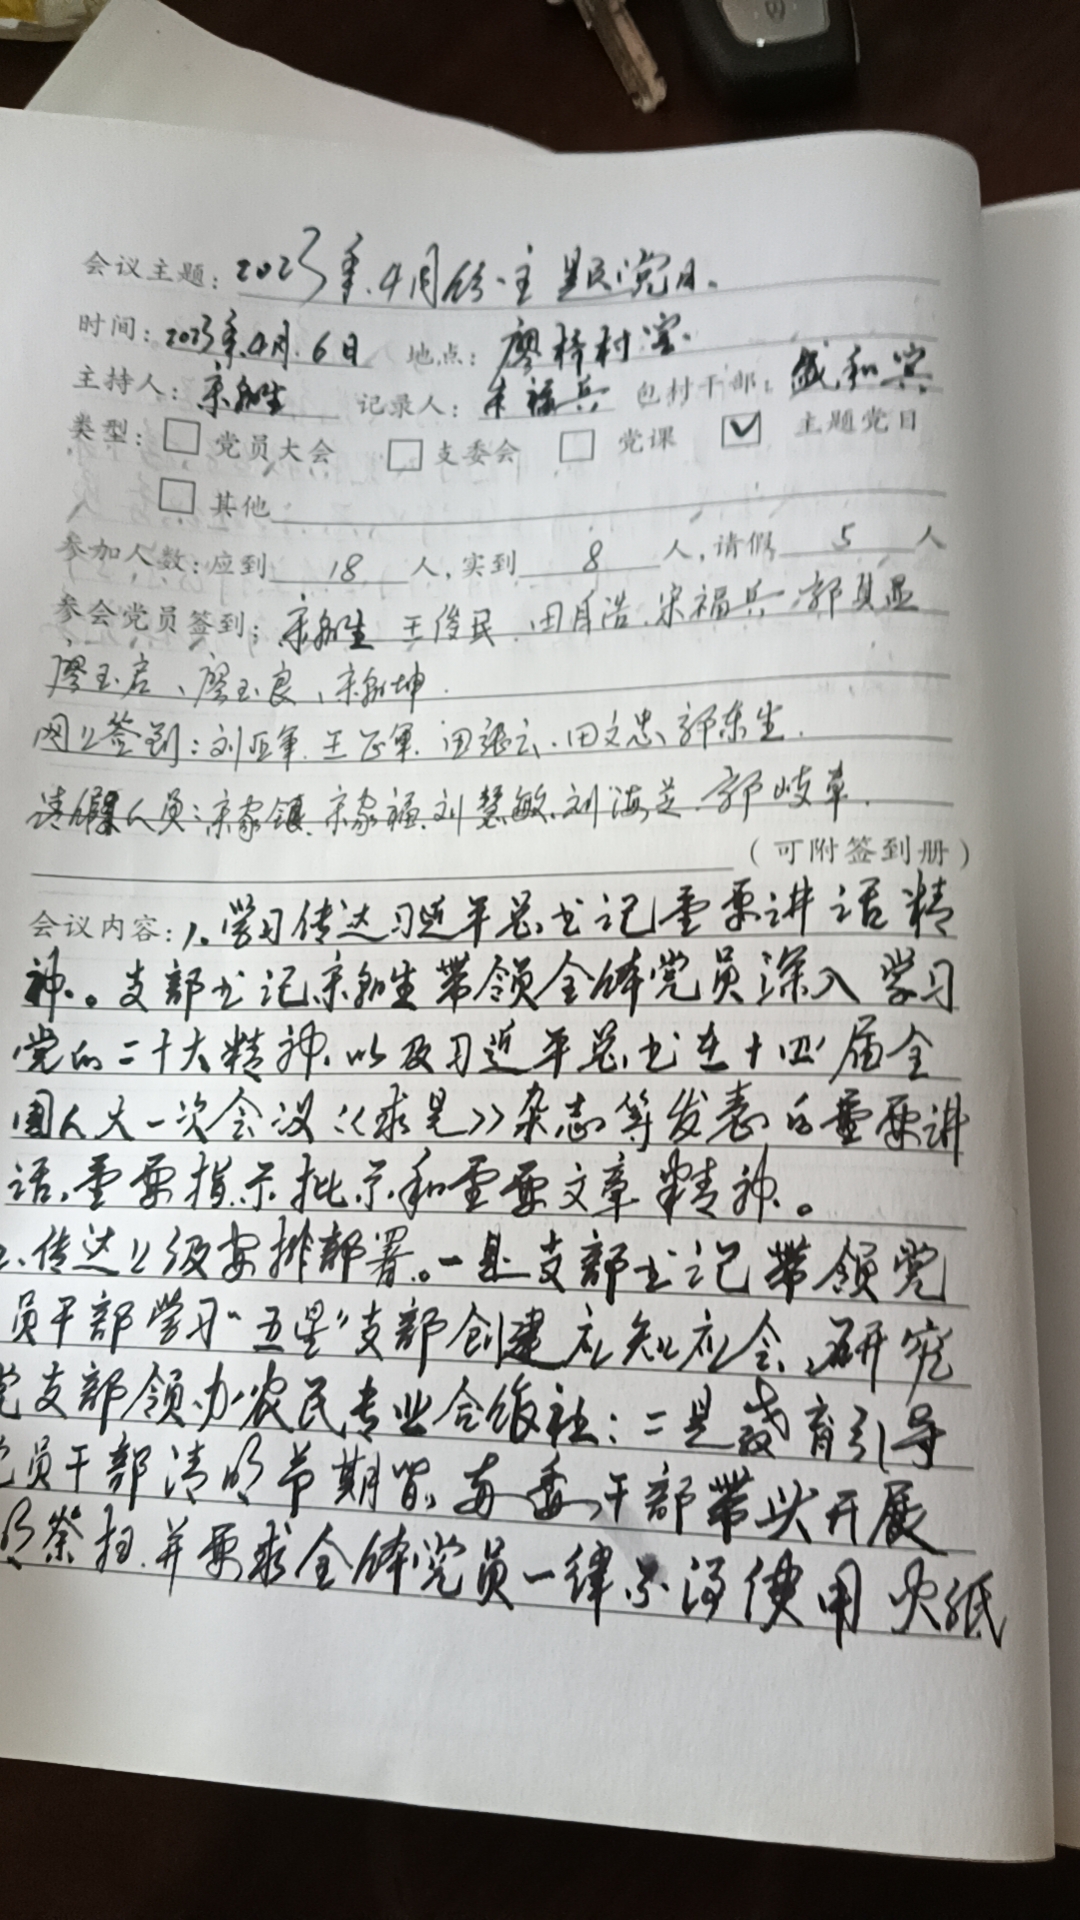 会议主题：2023年.4月份.主题党日。
时间：2023年.4月.6日 地点：廖 村室
主持人：宋 生 记录人：宋福兵 包村干部：盛和宾
类型：□ 党员大会 □ 支委会 □ 党课 ☑ 主题党日
□ 其他
参加人数：应到 18 人，实到 8 人，请假 5 人
参会党员签到：宋 生 王俊民.田 浩.宋福兵.郭其
廖玉 、廖玉良、宋 坤.
网上签到：刘 军.王 军.田 云.田文忠.郭东生.
请假人员：宋家镇.宋家福.刘慧敏.刘海芝.郭岐
（可附签到册）
会议内容：1、学习传达习近平总书记重要讲话精
神。支部书记宋 生带领全体党员深入学习
党的二十大精神.以及习近平总书在十四届全
国人大一次会议《求是》杂志等发表的重要讲
话、重要指示批示和重要文章精神。
传达上级安排部署。一是支部书记带领党
员干部学习“五星”支部创建应知应会、研究
党支部领办农民专业合作社；二是教育引导
党员干部清明节期间，两委干部带头开展
明祭扫.并要求全体党员一律不得使用火纸